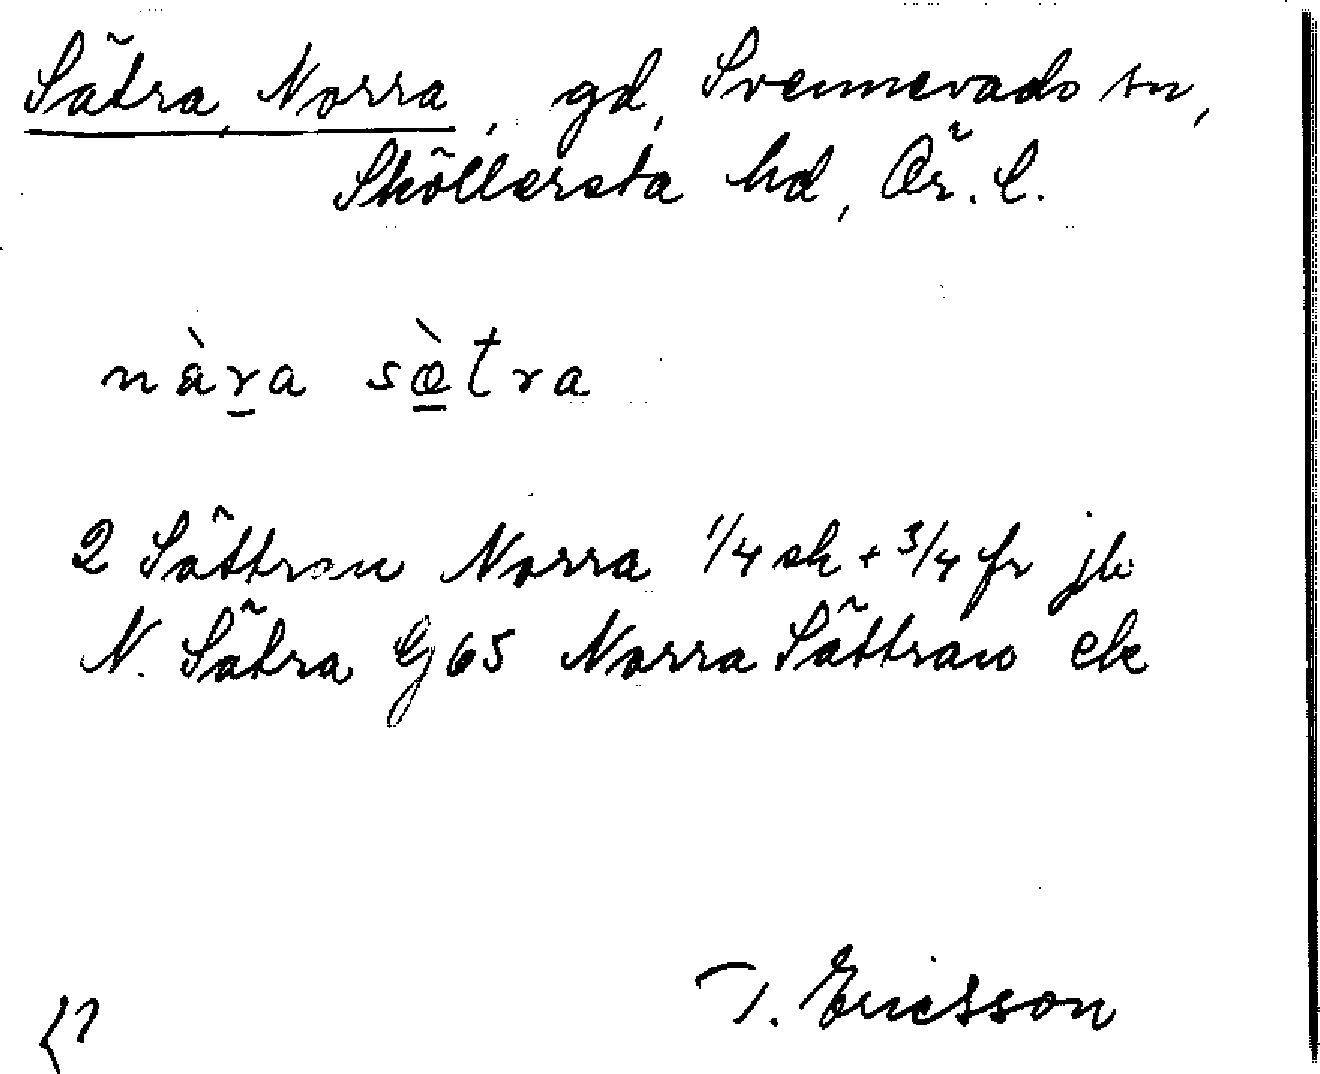 Sätra, Norra, gd, Svennevads sn,
Sköllersta hd, Ör. l.
nàra sœ̀tra
2 Sättran Norra 1/4 sk + 3/4 fr jb
N. Sätra G65 Norra Sättran ek
T. Ericsson